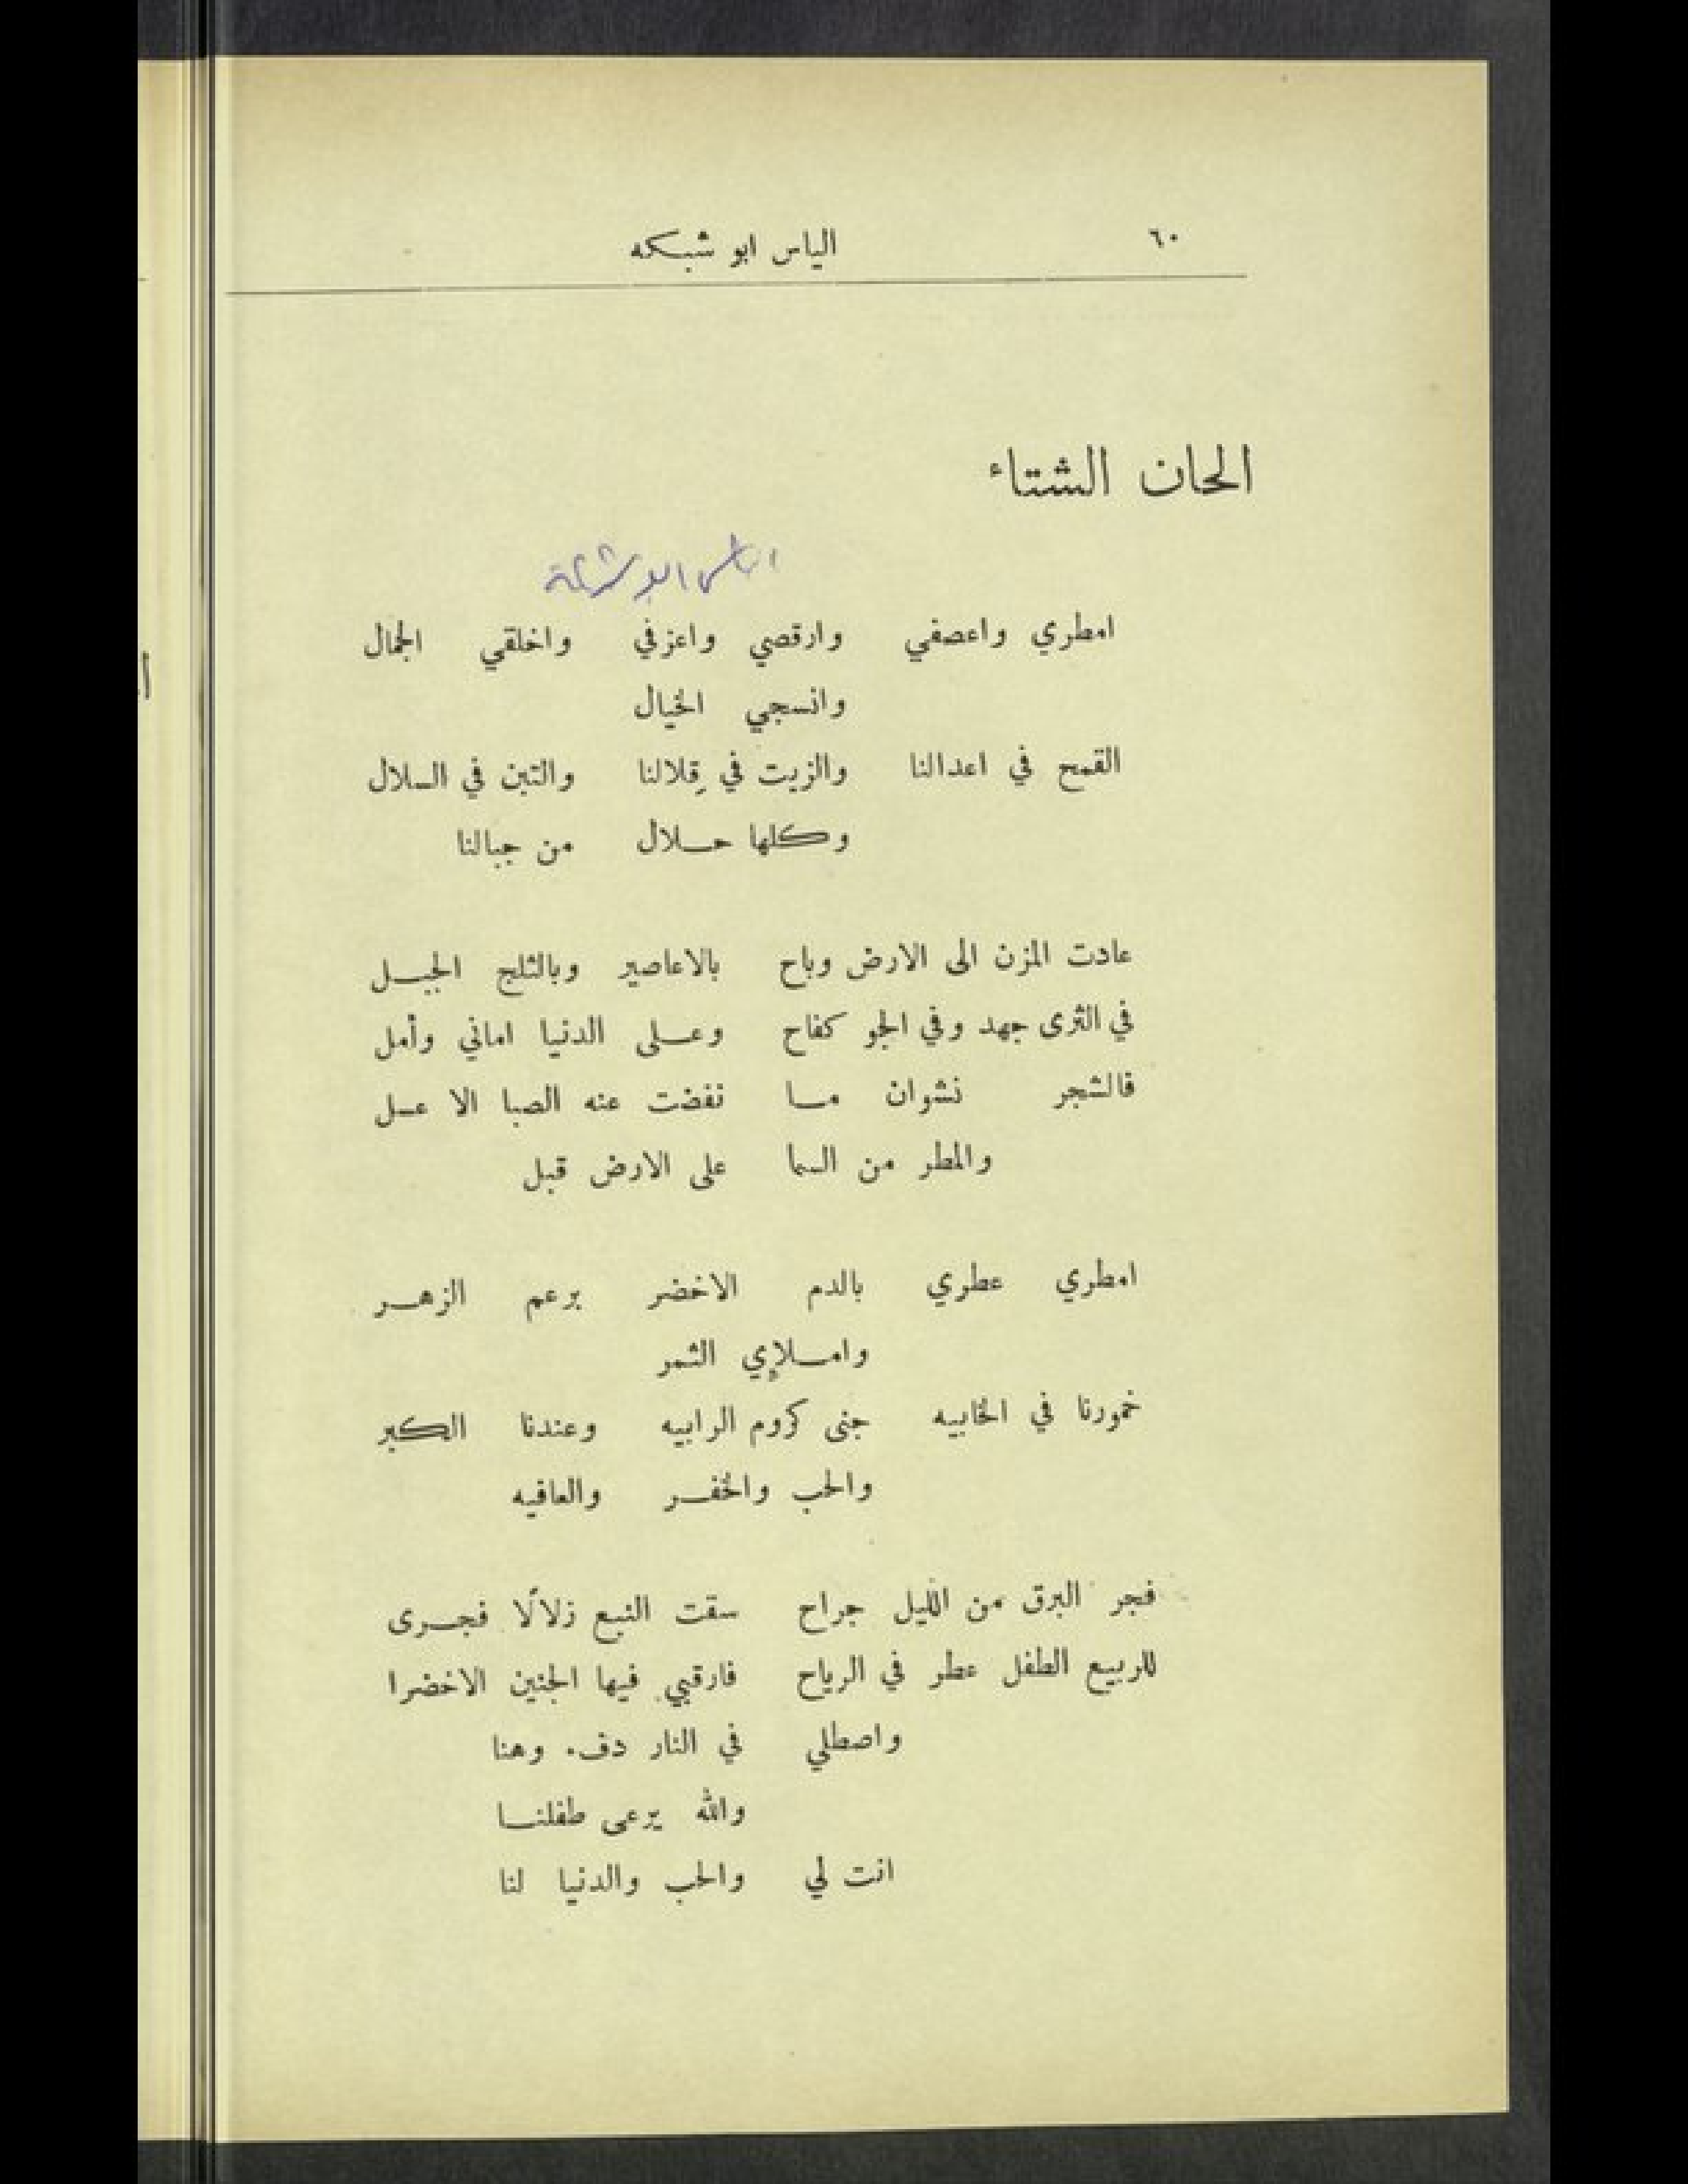 ٦٠
الياس ابو شبكه
الحان الشتاء
الياس ابو شبكة
امطري واعصفي وارقصي واعزفي واخلقي الجمال
وانسجي الخيال
القمح في اعدالنا والزيت في قِلالنا والتين في السلال
وكلها حلال من جبالنا
عادت المزن الى الارض وباح بالاعاصير وبالثلج الجبل
في الثرى جهد وفي الجو كفاح وعلى الدنيا اماني وأمل
فالشجر نشوان ما نفضت عنه الصبا الا عسل
والمطر من السما على الارض قبل
امطري عطري بالدم الاخضر برعم الزهر
واملإي الثمر
خمورنا في الخابيه جنى كروم الرابيه وعندنا الكبر
والحب والخفر والعافيه
فجر البرق من الليل جراح سقت النبع زلالًا فجرى
للربيع الطفل عطر في الرياح فارقبي فيها الجنين الاخضرا
واصطلي في النار دفء وهنا
والله يرعى طفلنا
انت لي والحب والدنيا لنا